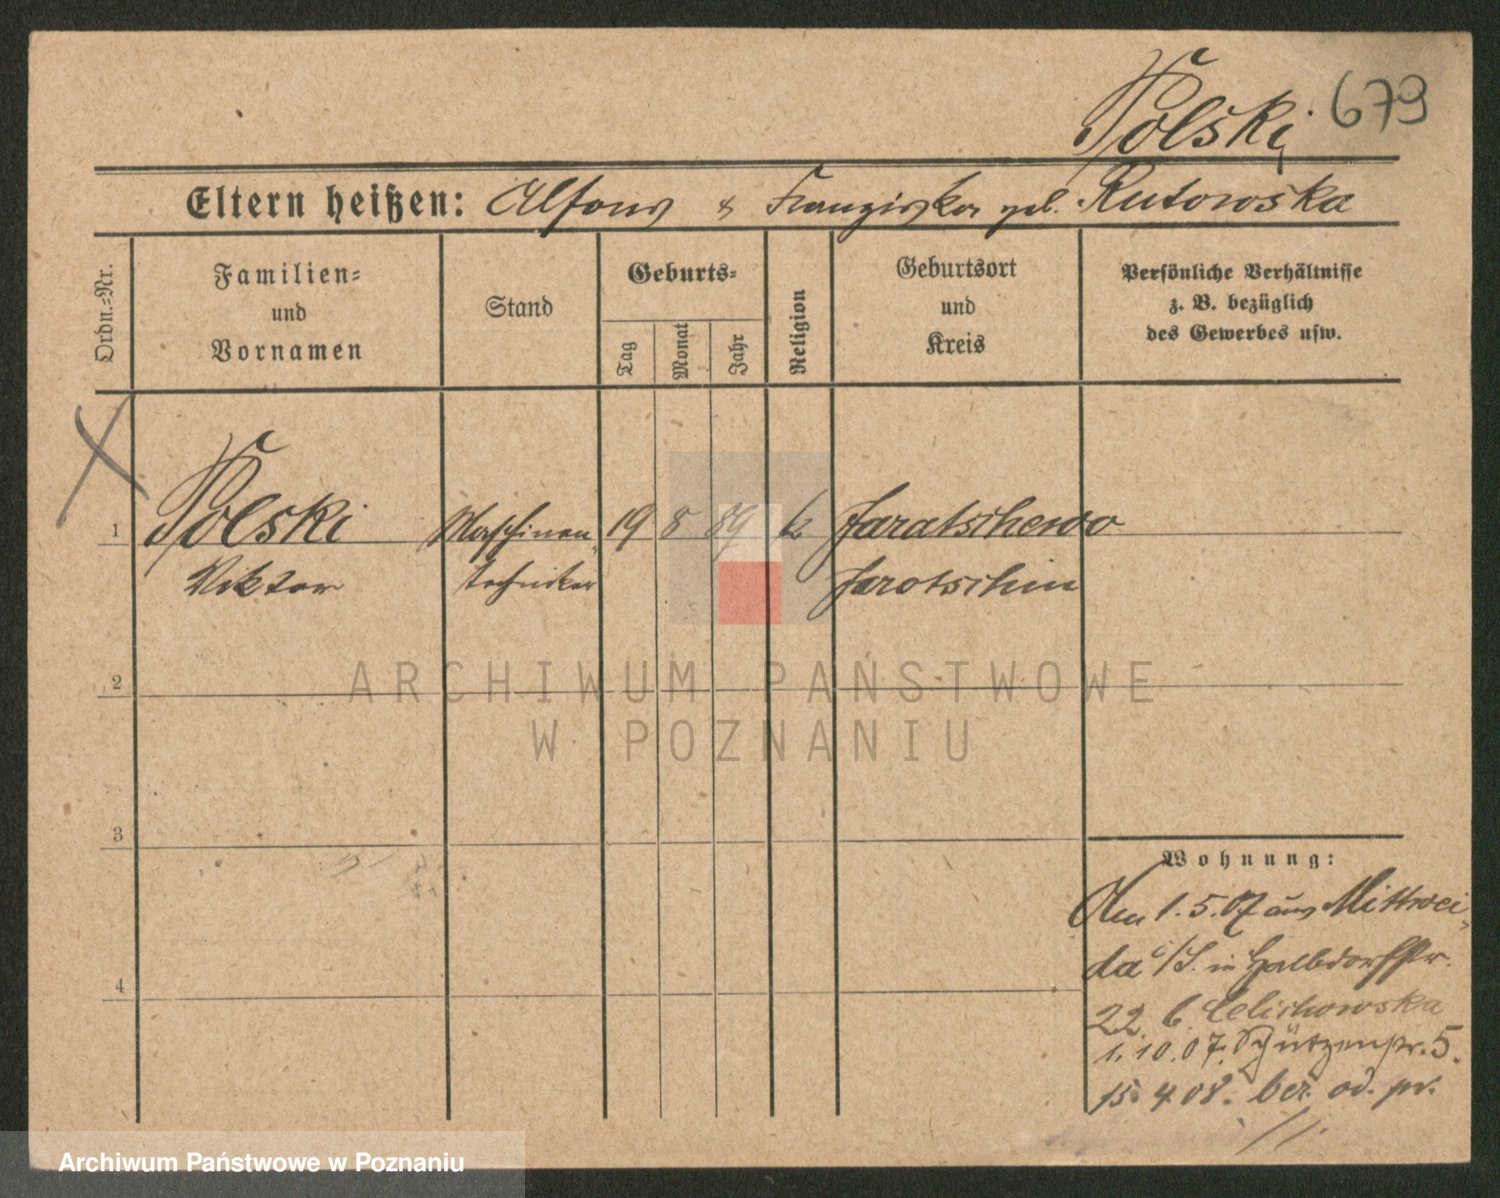 Polski 679
Eltern heißen: Alfons & Franziska geb. Rutowska
Ordn.-Nr.
Familien-
und
Vornamen
Stand
Geburts-
Tag
Monat
Jahr
Religion
Geburtsort
und
Kreis
Persönliche Verhältnisse
z. B. bezüglich
des Gewerbes usw.
1 Polski Maschinen- 19 8 89 k Jaratschewo
Viktor techniker Jarotschin
2
ARCHIWUM PAŃSTWOWE
W POZNANIU
3
Wohnung:
Am 1.5.07 aus Mittwei-
da i/S. in Halbdorfstr.
4
22 b. Celichowska
1.10.07. Schützenstr. 5.
15.4.08. od.
Archiwum Państwowe w Poznaniu